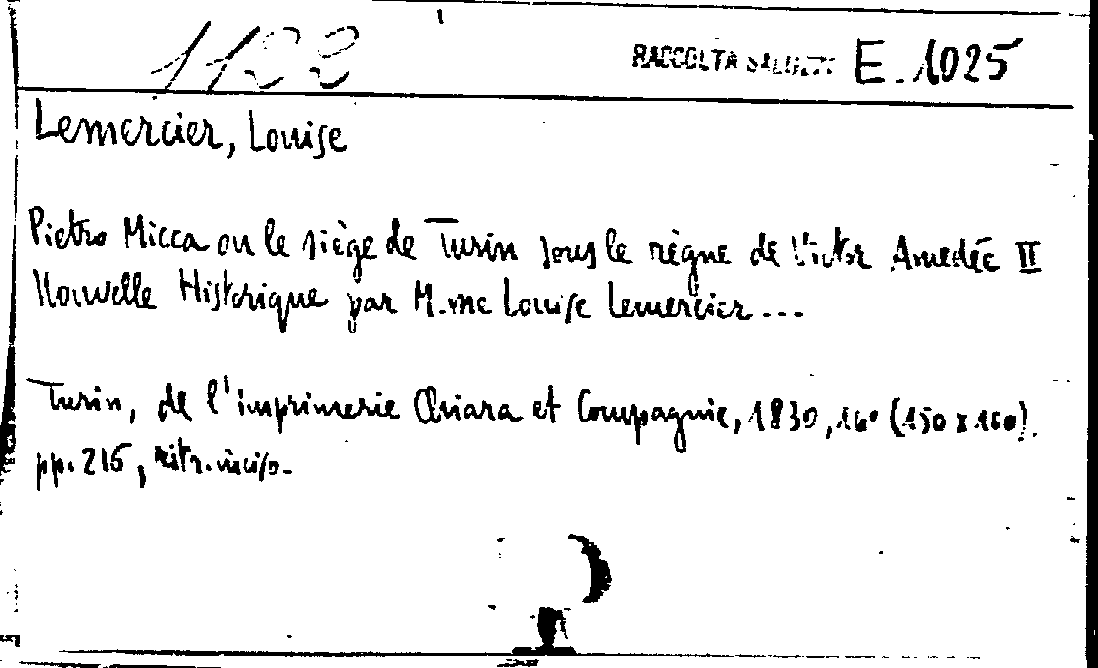 1122
RACCOLTA SALUZZO E. 1025
Lemercier, Louise
Pietro Micca ou le siège de Turin sous le règne de Victor Amedée II
Nouvelle Historique par M.me Louise Lemercier ...
Turin, de l'imprimerie Chiara et Compagnie, 1830, 16° (150 x 160).
pp. 215, ritr. inciso.